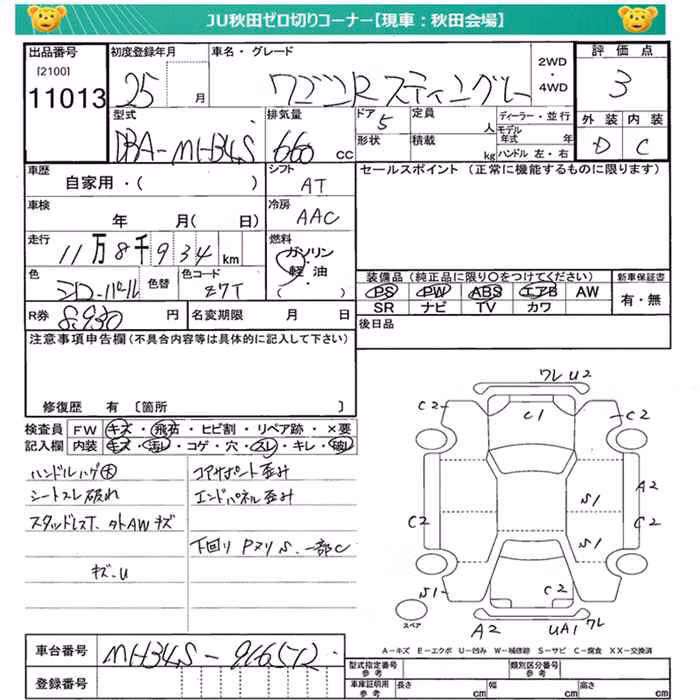 JU秋田ゼロ切りコーナー【現車：秋田会場】
出品番号 [2100] 11013
初度登録年月 25 月
車名・グレード ワゴンR スティングレー
2WD・4WD
評価点 3
外装 D 内装 C
型式 DBA-MH34S
排気量 660 cc
ドア 5 形状
定員 人 積載 kg
ディーラー・並行
モデル年式 年
ハンドル 左・右
車歴 自家用・( )
シフト AT
セールスポイント (正常に機能するものに限ります)
車検 年 月( 日)
冷房 AAC
走行 11万8千934km
燃料 ガソリン・軽油・( )
色 シロ-パール 色替
色コード Z7T
装備品 (純正品に限り○をつけてください)
PS PW ABS エアB AW
SR ナビ TV カワ
新車保証書 有・無
R券 8,930 円
名変期限 月 日
後日品
注意事項申告欄(不具合内容等は具体的に記入して下さい)
修復歴 有〔箇所 〕
検査員記入欄
FW キズ・飛石・ヒビ割・リペア跡・×要
内装 キズ・汚レ・コゲ・穴・スレ・キレ・破レ
ハンドルハゲ大
シートスレ破れ
スタッドレスT、夕トAWキズ
キズ.U
コアサポート歪み
エンドパネル歪み
下回り Pヌリ S、一部C
ワレ U2
C2 C1 C2
A2
S1
C2 C2
S1
S1 C2
A2 UA1 ワレ
スペア
A－キズ E－エクボ U－凹み W－補修跡 S－サビ C－腐食 XX－交換済
車台番号 MH34S-916512
登録番号
型式指定番号 参考
類別区分番号 参考
車庫証明用 参考 長さ cm 幅 cm 高さ cm